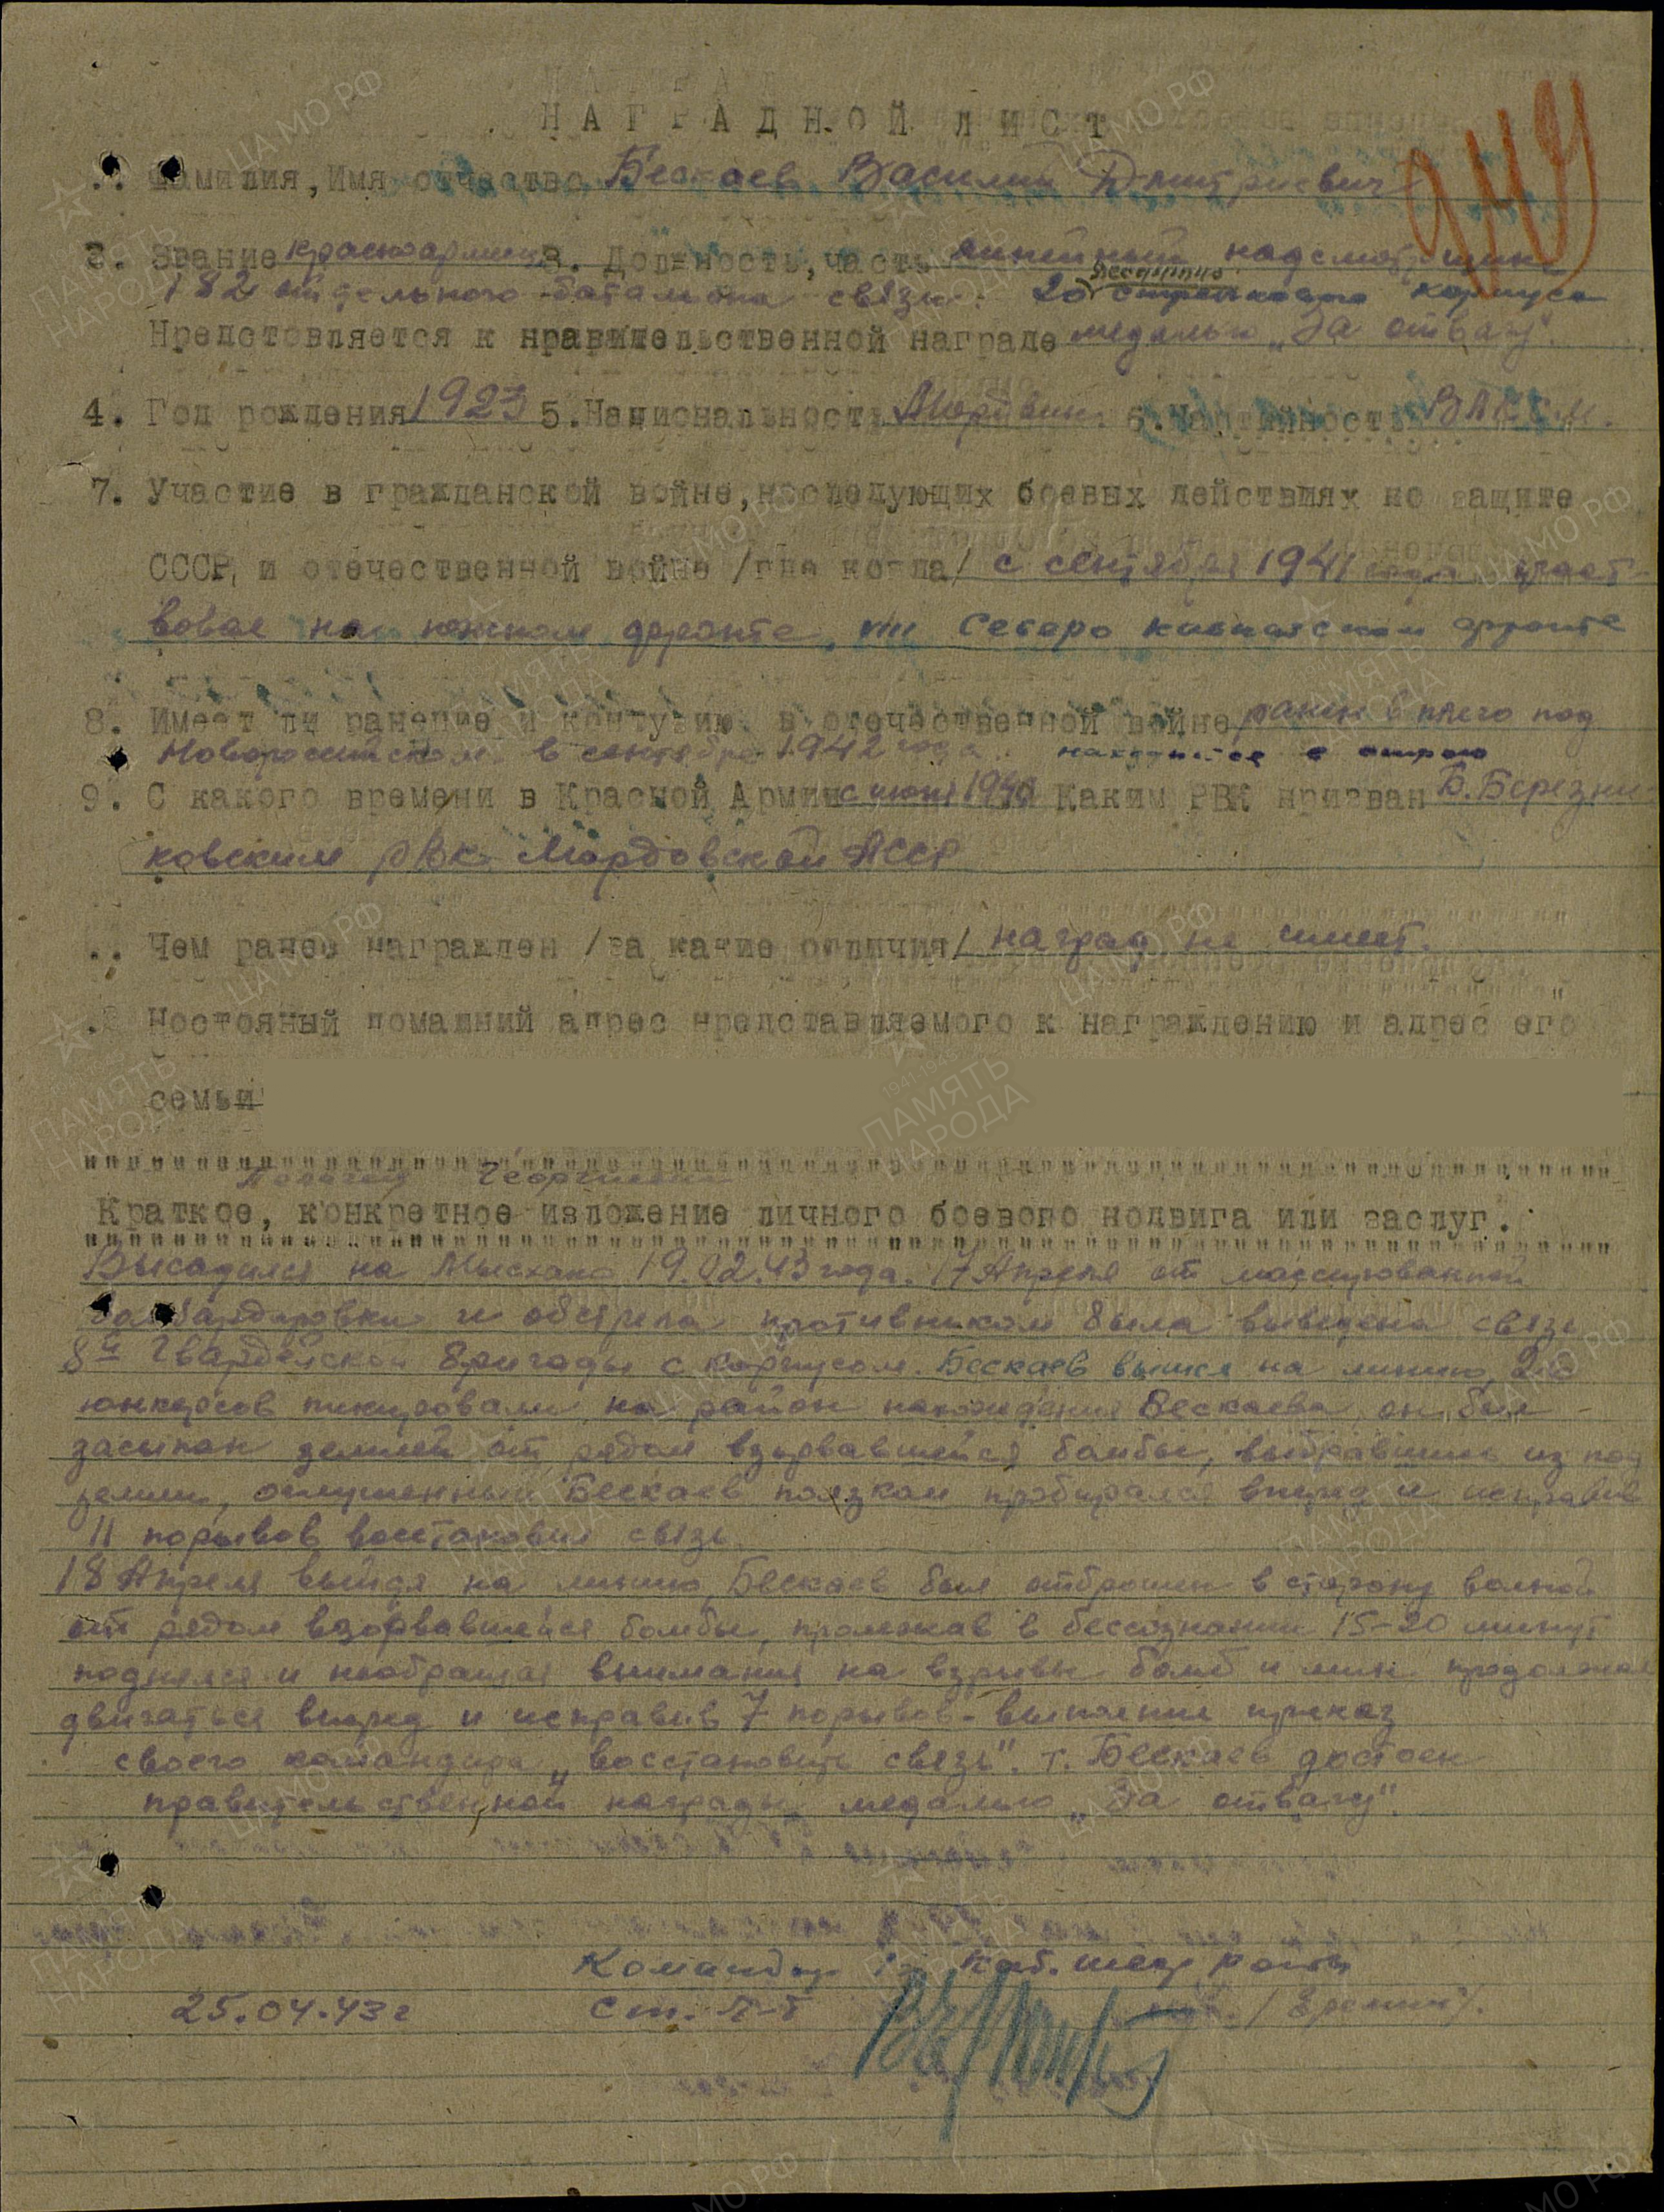 НАГРАДНОЙ ЛИСТ
Фамилия, Имя отчество Бескаев Василий Дмитриевич
3. Звание красноармеец 3. Должность, часть линейный надсмотрщик
десантного
182 отдельного батальона связи 20 стрелкового корпуса
Нредстовляется к нравительственной награде медалью „За отвагу".
4. Год рождения 1923 5. Национальность Мордвин. 6. Партийность ВЛКСМ.
7. Участие в гражданской войне, носледующих боевых действиях но защите
СССР, и отечественной войне /где когда/ с сентября 1941 года участ-
вовал на южном фронте, Северо кавказском фронте
8. Имеет ли ранение и контузию в отечественной войне ранен в плечо под
Новороссийском в сентябре 1942 года. находится в строю
9. С какого времени в Красной Армии с июня 1941 Каким РВК нризван Б. Березни-
ковским РВК Мордовской АССР
Чем ранее награжден /за какие отличия/ наград не имеет.
Ностояный домашний адрес нредставляемого к награждению и адрес его
семьи
Краткое, конкретное изложение личного боевого нодвига или заслуг.
Высадился на Мысхако 19.02.43 года. 17 Апреля от массированной
бомбардировки и обстрела противником была выведена связь
8й Гвардейской бригады с корпусом. Бескаев вышел на линию,
юнкерсов пикировали на район нахождения Бескаева, он был
засыпан землей от рядом взорвавшейся бомбы, выбравшись из под
земли, оглушенный Бескаев ползком пробирался вперед и исправив
11 порывов восстановил связь.
18 Апреля выйдя на линию, Бескаев был отброшен в сторону волной
от рядом взорвавшейся бомбы, пролежав в бессознании 15-20 минут
поднялся и необращая внимания на взрывы бомб и мин продолжал
двигаться вперед и исправив 7 порывов - выполнил приказ
своего командира „восстановить связь". т. Бескаев достоен
правительственной награды медалью „За отвагу".
Командир каб. шест роты
25.04.43г Ст. Л-т